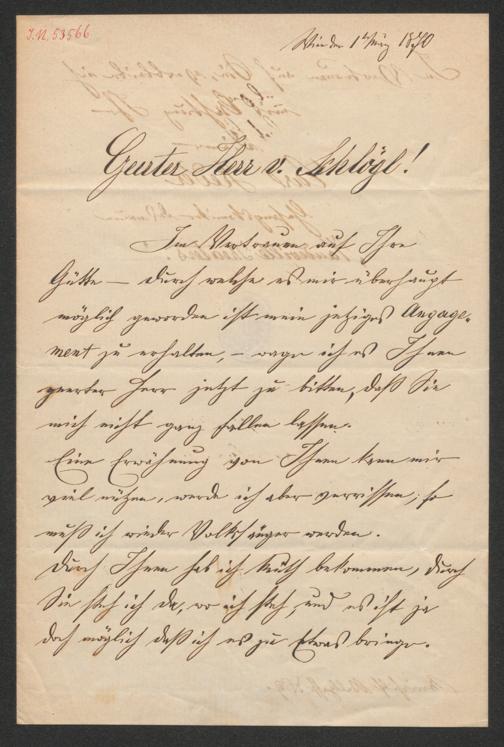 J.N. 53566
Wien den 1t März 1870
Geerter Herr v. Schlögl!
Im Vertrauen auf Ihre
Gütte – durch welche es mir überhaupt
möglich geworden ist mein jeziges Angage-
ment zu erhalten, – wage ich es Ihnen
geerter Herr jetzt zu bitten, daß Sie
mich nicht ganz fallen lassen.
Eine Erwähnung von Ihnen kann mir
viel nüzen, werde ich aber verrissen, so
muß ich wieder Volksänger werden.
Durch Ihnen hab ich Muth bekommen, durch
Sie steh ich da, wo ich steh, und es ist ja
doch möglich daß ich es zu Etwas bringe.